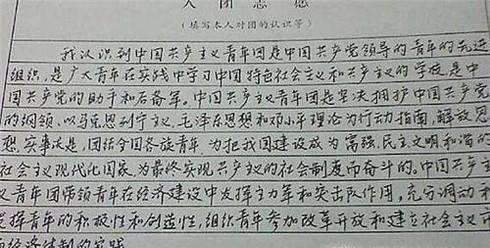 入团志愿
(填写本人对团的认识等)
我认识到中国共产主义青年团是中国共产党领导的青年的先进
组织,是广大青年在实践中学习中国特色社会主义和共产主义的学校,是中
国共产党的助手和后备军。中国共产主义青年团是坚决拥护中国共产党
的纲领,以马克思列宁主义、毛泽东思想和邓小平理论为行动指南,解放思
想,实事求是,团结全国各族青年,为把我国建设成为富强、民主、文明和谐的
社会主义现代化国家,为最终实现共产主义的社会制度而奋斗的。中国共产主
义青年团带领青年在经济建设中发挥主力军和突击队作用,充分调动和
发挥青年的积极性和创造性,组织青年参加改革开放和建立社会主义市
场经济体制的实践